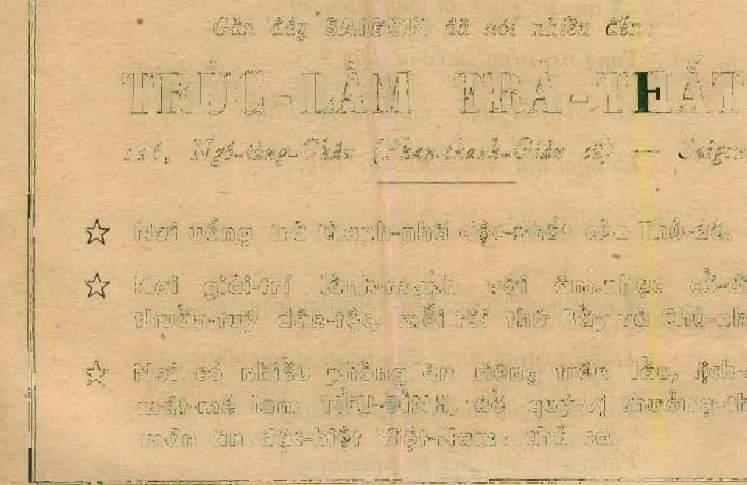 Gần đây SAIGON đã nói nhiều đến:
TRÚC-LÂM TRÀ-THẤT
Ngô-tùng-Châu (Phan-thanh-Giản cũ) — Saigon
☆ Nơi uống trà thanh-nhã độc-nhất của Thủ-đô.
☆ Nơi giải-trí lành-mạnh với âm-nhạc cổ-đ
thuần-tuý dân-tộc, mỗi tối thứ bảy và Chủ-nh
☆ Nơi có nhiều phòng ăn riêng trên lầu, lịch-s
mát-mẻ làm TỬU-ĐÌNH, để quý-vị thưởng-th
món ăn đặc-biệt Việt-Nam